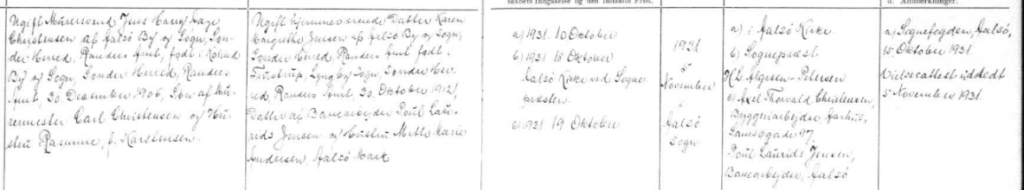 Ugift Murersvend Jens Carry Aage
Christensen af Aalsø By og Sogn, Søn-
der Herred, Randers Amt, født i Kolind
By og Sogn, Sønder Herred, Randers
Amt, 30. December 1906, Søn af Mu-
rermester Carl Christensen og Hus-
tru Rasmine, f. Karstensen.
Ugift hjemmeværende Datter Karen
Margrethe Jensen af Aalsø By og Sogn,
Sønder Herred, Randers Amt født i
Fuglstrup, Lyngby Sogn, Sønder Her-
red, Randers Amt, 20. Oktober 1912,
Datter af Banearbejder Poul Lau-
rids Jensen og Hustru Mette Marie
Andersen, Aalsø Mark
a) 1931 10 Oktober
b) 1931 15 Oktober
Aalsø Kirke ved Sogne-
præsten.
c) 1931 19 Oktober
1931
5
November
Aalsø
Sogn
a) i Aalsø Kirke
b) Sognepræst
Algreen-Petersen
c) Axel Thorvald Christensen,
Byggeriarbejder, Aarhus,
Samsøgade 97,
Poul Laurids Jensen,
Banearbejder, Aalsø
d. Anmærkninger.
a) Sognefogden, Aalsø,
15. Oktober 1931
Vielsesattest udstedt
5 November 1931.